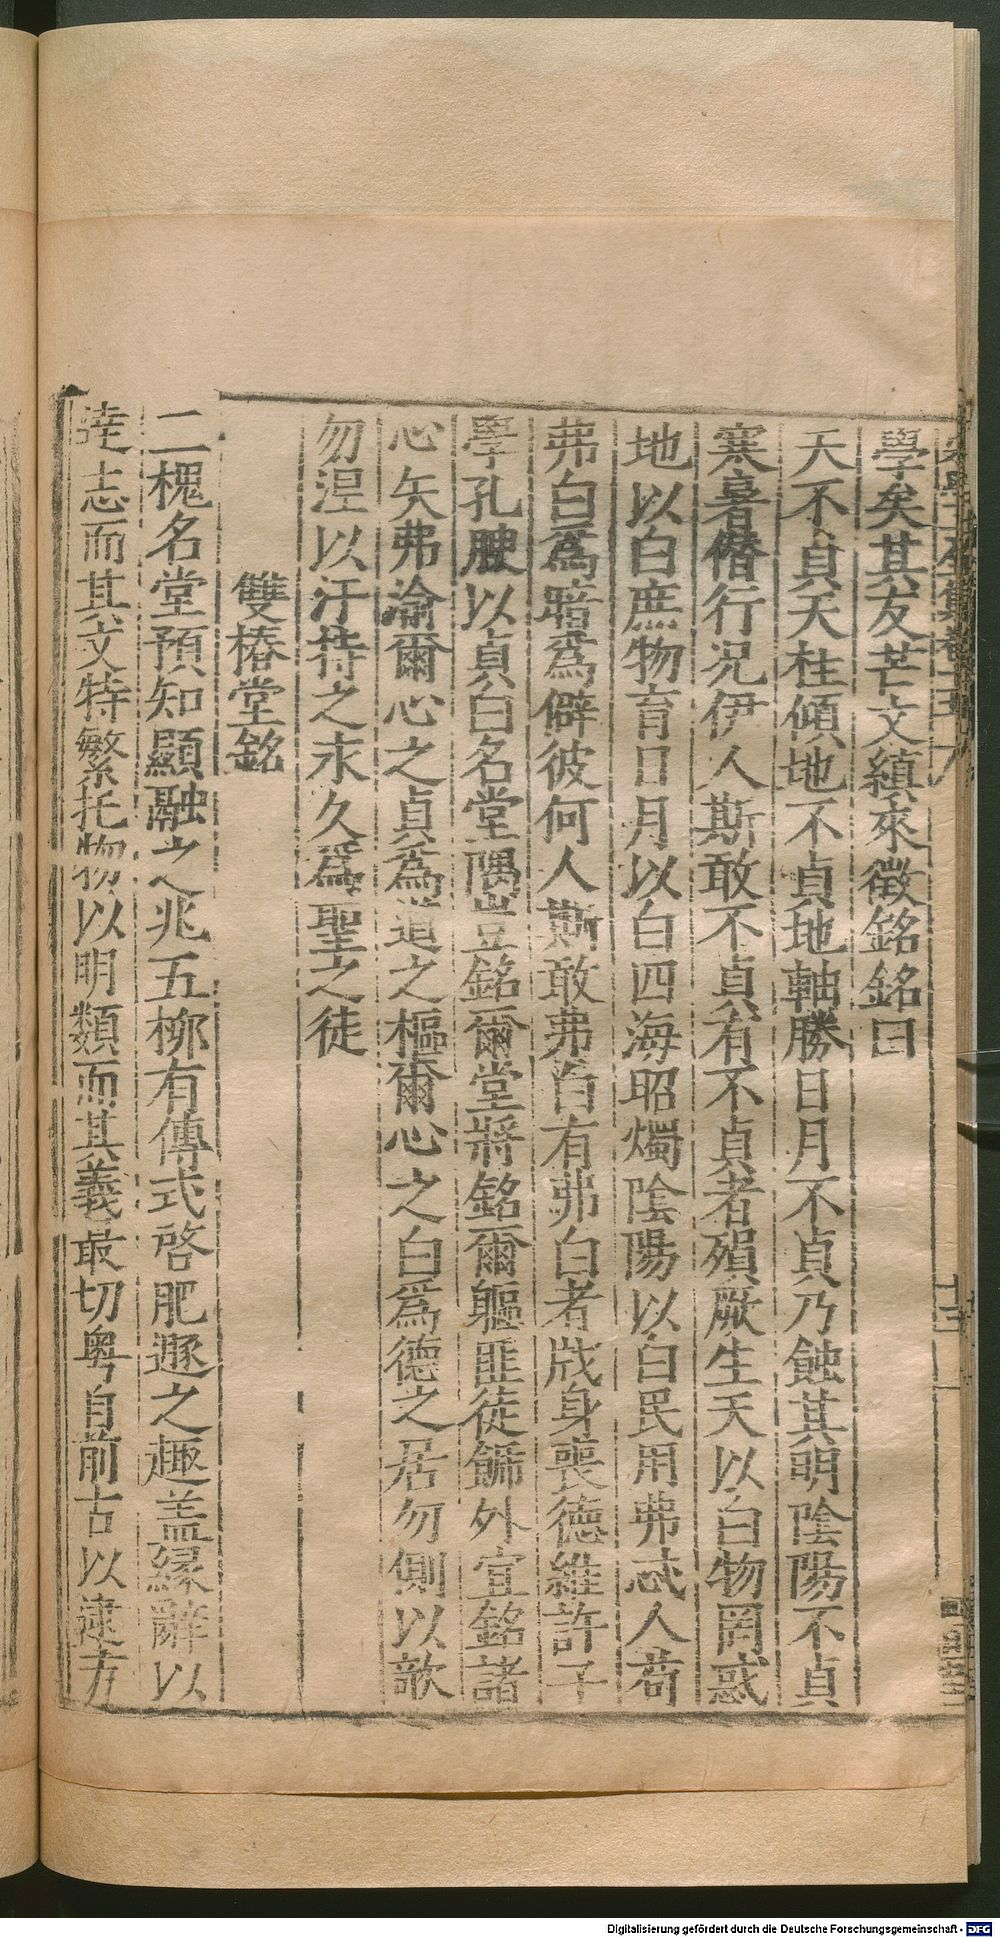 學矣其友芒文縝來徵銘銘曰
天不貞天柱傾地不貞地軸勝日月不貞乃蝕其明陰陽不貞
寒暑僭行况伊人斯敢不貞有不貞者殞厥生天以白物罔惑
地以白庶物育日月以白四海昭燭陰陽以白民用弗忒人苟
弗白爲暗爲僻彼何人斯敢弗白有弗白者戕身喪德維許子
學孔腴以貞白名堂隅豈銘爾堂將銘爾軀匪徒飾外宜銘諸
心矢弗渝爾心之貞爲道之樞爾心之白爲德之居勿側以欹
勿涅以汙持之永久爲聖之徒
雙椿堂銘
二槐名堂預知顯融之兆五柳有傳式啓肥遯之趣盖縁辭以
達志而其文特繁托物以明類而其義最切粤自前古以逮方
Digitalisierung gefördert durch die Deutsche Forschungsgemeinschaft - DFG